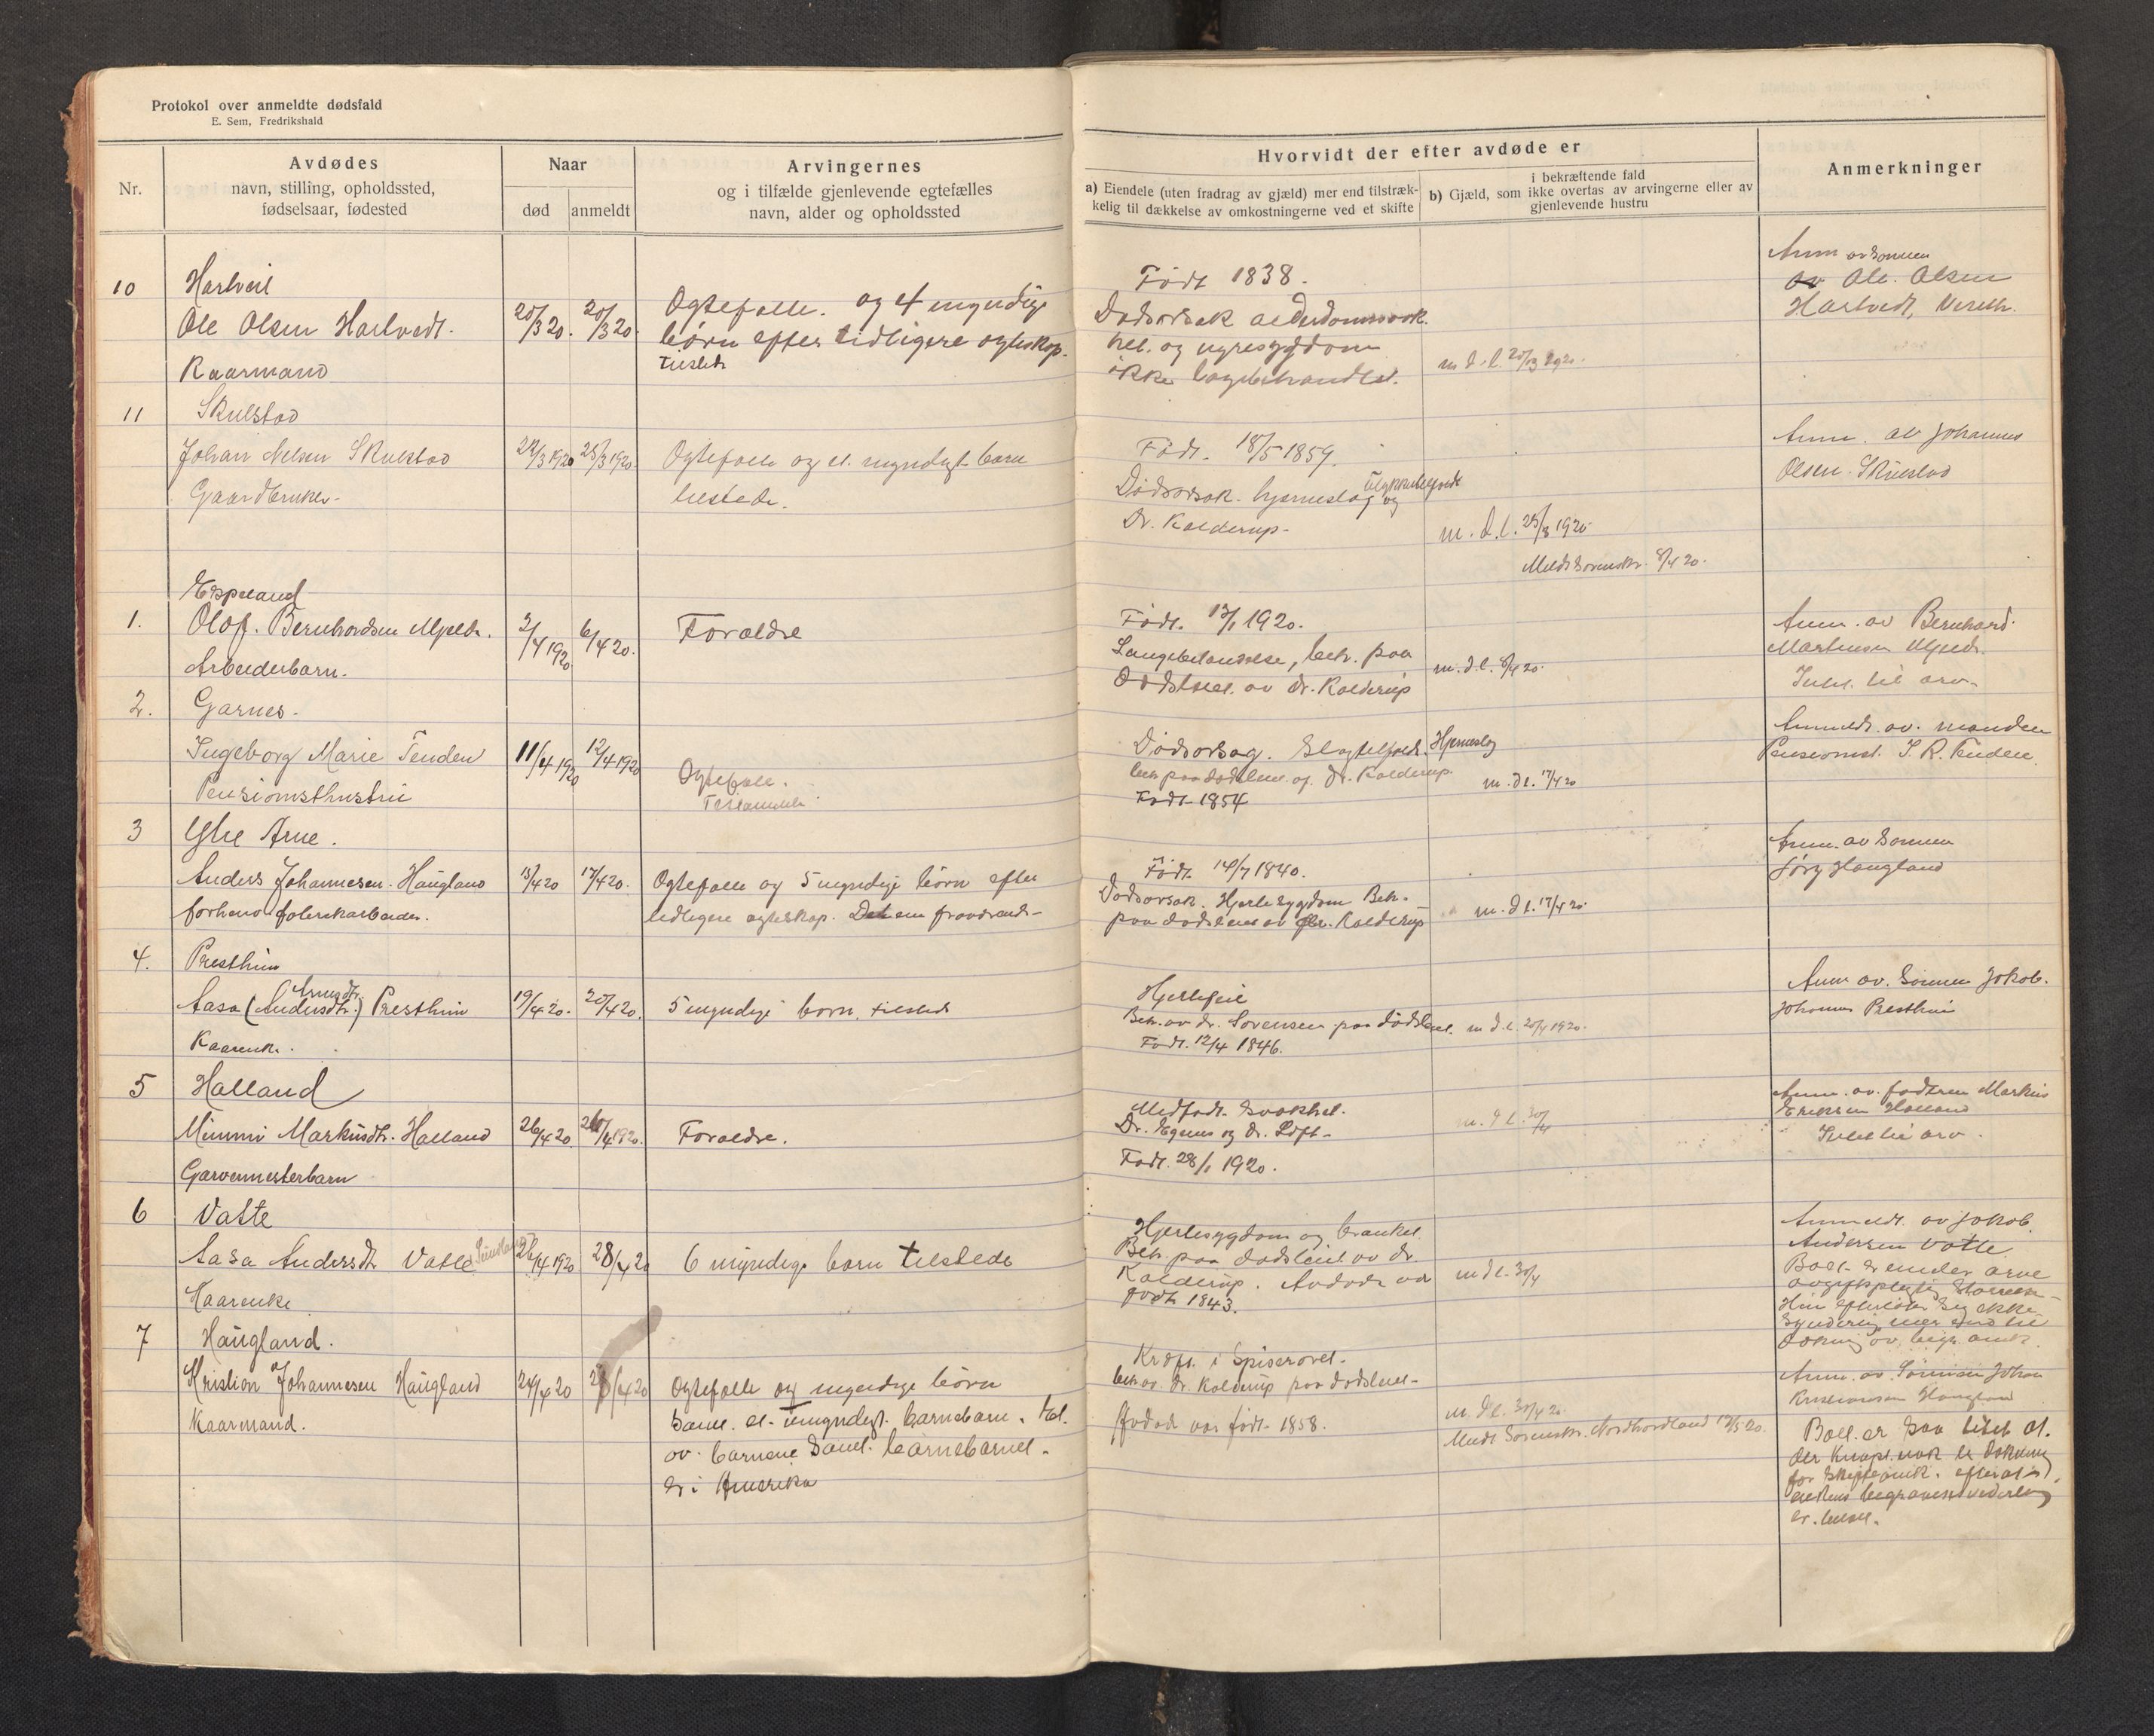 Protokol over anmeldte dødsfald
E. Sem, Fredrikshald
Nr.
Avdødes
navn, stilling, opholdssted,
fødselsaar, fødested
Naar
død
anmeldt
Arvingernes
og i tilfælde gjenlevende egtefælles
navn, alder og opholdssted
Hvorvidt der efter avdøde er
a) Eiendele (uten fradrag av gjæld) mer end tilstræk-
kelig til dækkelse av omkostningerne ved et skifte
i bekræftende fald
b) Gjæld, som ikke overtas av arvingerne eller av
gjenlevende hustru
Anmerkninger
10
Ole Olsen Hartvedt.
Kaarmand
20/3 20.
20/3 20.
Ogtefolle. og 4 myndige
børn efter tidligere ogteskap.
tilstede
Født 1838.
Dødsorsak alderdomssvak.
hel. og nyresygdom
ikke
m d. l.
Anm av sønnen
av Ole Olsen
Hartvedt,
11
Skulstad
Johan Nelsen Skulstad
Gaardbruker.
25/3 1920.
Ogtefolle og et myndigt barn
tilstede.
Født. 18/5 1859.
Dødsorsak. hjerneslag og
Dr. Kalderup.
m. d. l. 25/3 1920
Meldt Sorenskr. 8/4 20.
Anm. av Johannes
Olsen Skulstad
1.
Espeland
Olaf. Bernhardsen Mjelde.
Arbeiderbarn.
3/4 1920
6/4 20.
Foraldre
Født. 1920.
Lungebetændelse, beh. paa
Dødsleiet av dr. Kalderup
m. d. l. 8/4 20.
Anm. av Bernhard
Martinsen Mjelde.
Intet til arv.
2.
Garnes.
Ingeborg Marie Tenden
Pensionisthustru
11/4 1920
12/4 1920
Ogtefolle.
Testamente
Dødsorsag. Hjerneslag
beh paa dødsleiet af Dr. Kalderup.
Født 1854
m. d l. 17/4 20
Anmeldt av. manden
Pensionist. S. R. Tenden.
3
Ytre Arne.
Anders Johannesen. Haugland
forhenv fabrikarbeider.
13/4 20
17/4 20.
Ogtefolle og 5 myndige børn efter
tidligere ogteskap.
Født 14/7 1840.
Dødsorsak. Hjertesygdom Beh.
paa dødsleiet av dr. Kalderup
m. d l. 17/4 20.
Anm. av sønnen
Haugland
4.
Presthun
Aasa (Andersdtr.) Presthun
Arnesdtr.
Kaarenke.
19/4 20.
20/4 20.
5 myndige born. tilstede
Hjertefeil
Beh. av dr. Sørensen paa dødsleiet.
Født. 12/4 1846.
m d. l. 20/4 1920.
Anm av. sønnen Jakob.
Johannes Presthun
5
Halland
Mimmi Markusdtr. Halland
Garvermesterbarn
26/4 20.
Foraldre.
Medfødt svakhet.
Dr. Egenes og dr. Loft.
Født. 28/1 1920.
m. d l. 30/4
Anm. av. fadren Markus
Eriksen Halland
Intet til arv.
6
Vatle
Aasa Andersdtr Vatle
Kaarenke
26/4 1920
28/4 20
6 myndige born tilstede
Hjertesygdom og
Beh. paa dødsleiet av dr.
Kalderup. Avdøde var
født 1843.
m d l. 30/4
Anmeldt av Jakob
Andersen Vatle.
Boet
7
Haugland.
Kristian Johannesen Haugland
Kaarmand.
24/4 20
28/4 20
Ogtefolle og myndige børn
samt. et. umyndigt. barnebarn.
av. barnene samt. barnebarnet.
er i Amerika
Kræft. i Spiserøret.
beh av. dr. Kalderup paa dødsleiet.
Avdøde var født. 1858.
m. d l. 30/4 20.
Meldt Sorenskr. Nordhordland
Anm. av. Sønnen Johan
Kristiansen Haugland
Boet er saa litet at.
der knapt. nok er dekning
for